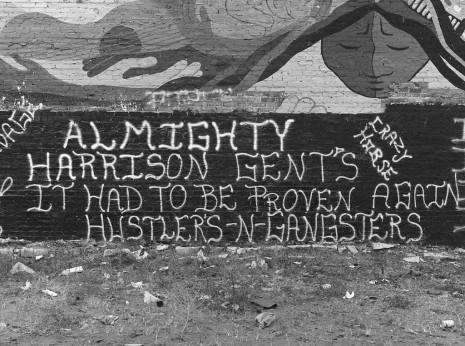 ALMIGHTY
HARRISON GENT'S
IT HAD TO BE PROVEN AGAIN
HUSTLER'S-N-GANGSTERS
CRAZY
HORSE